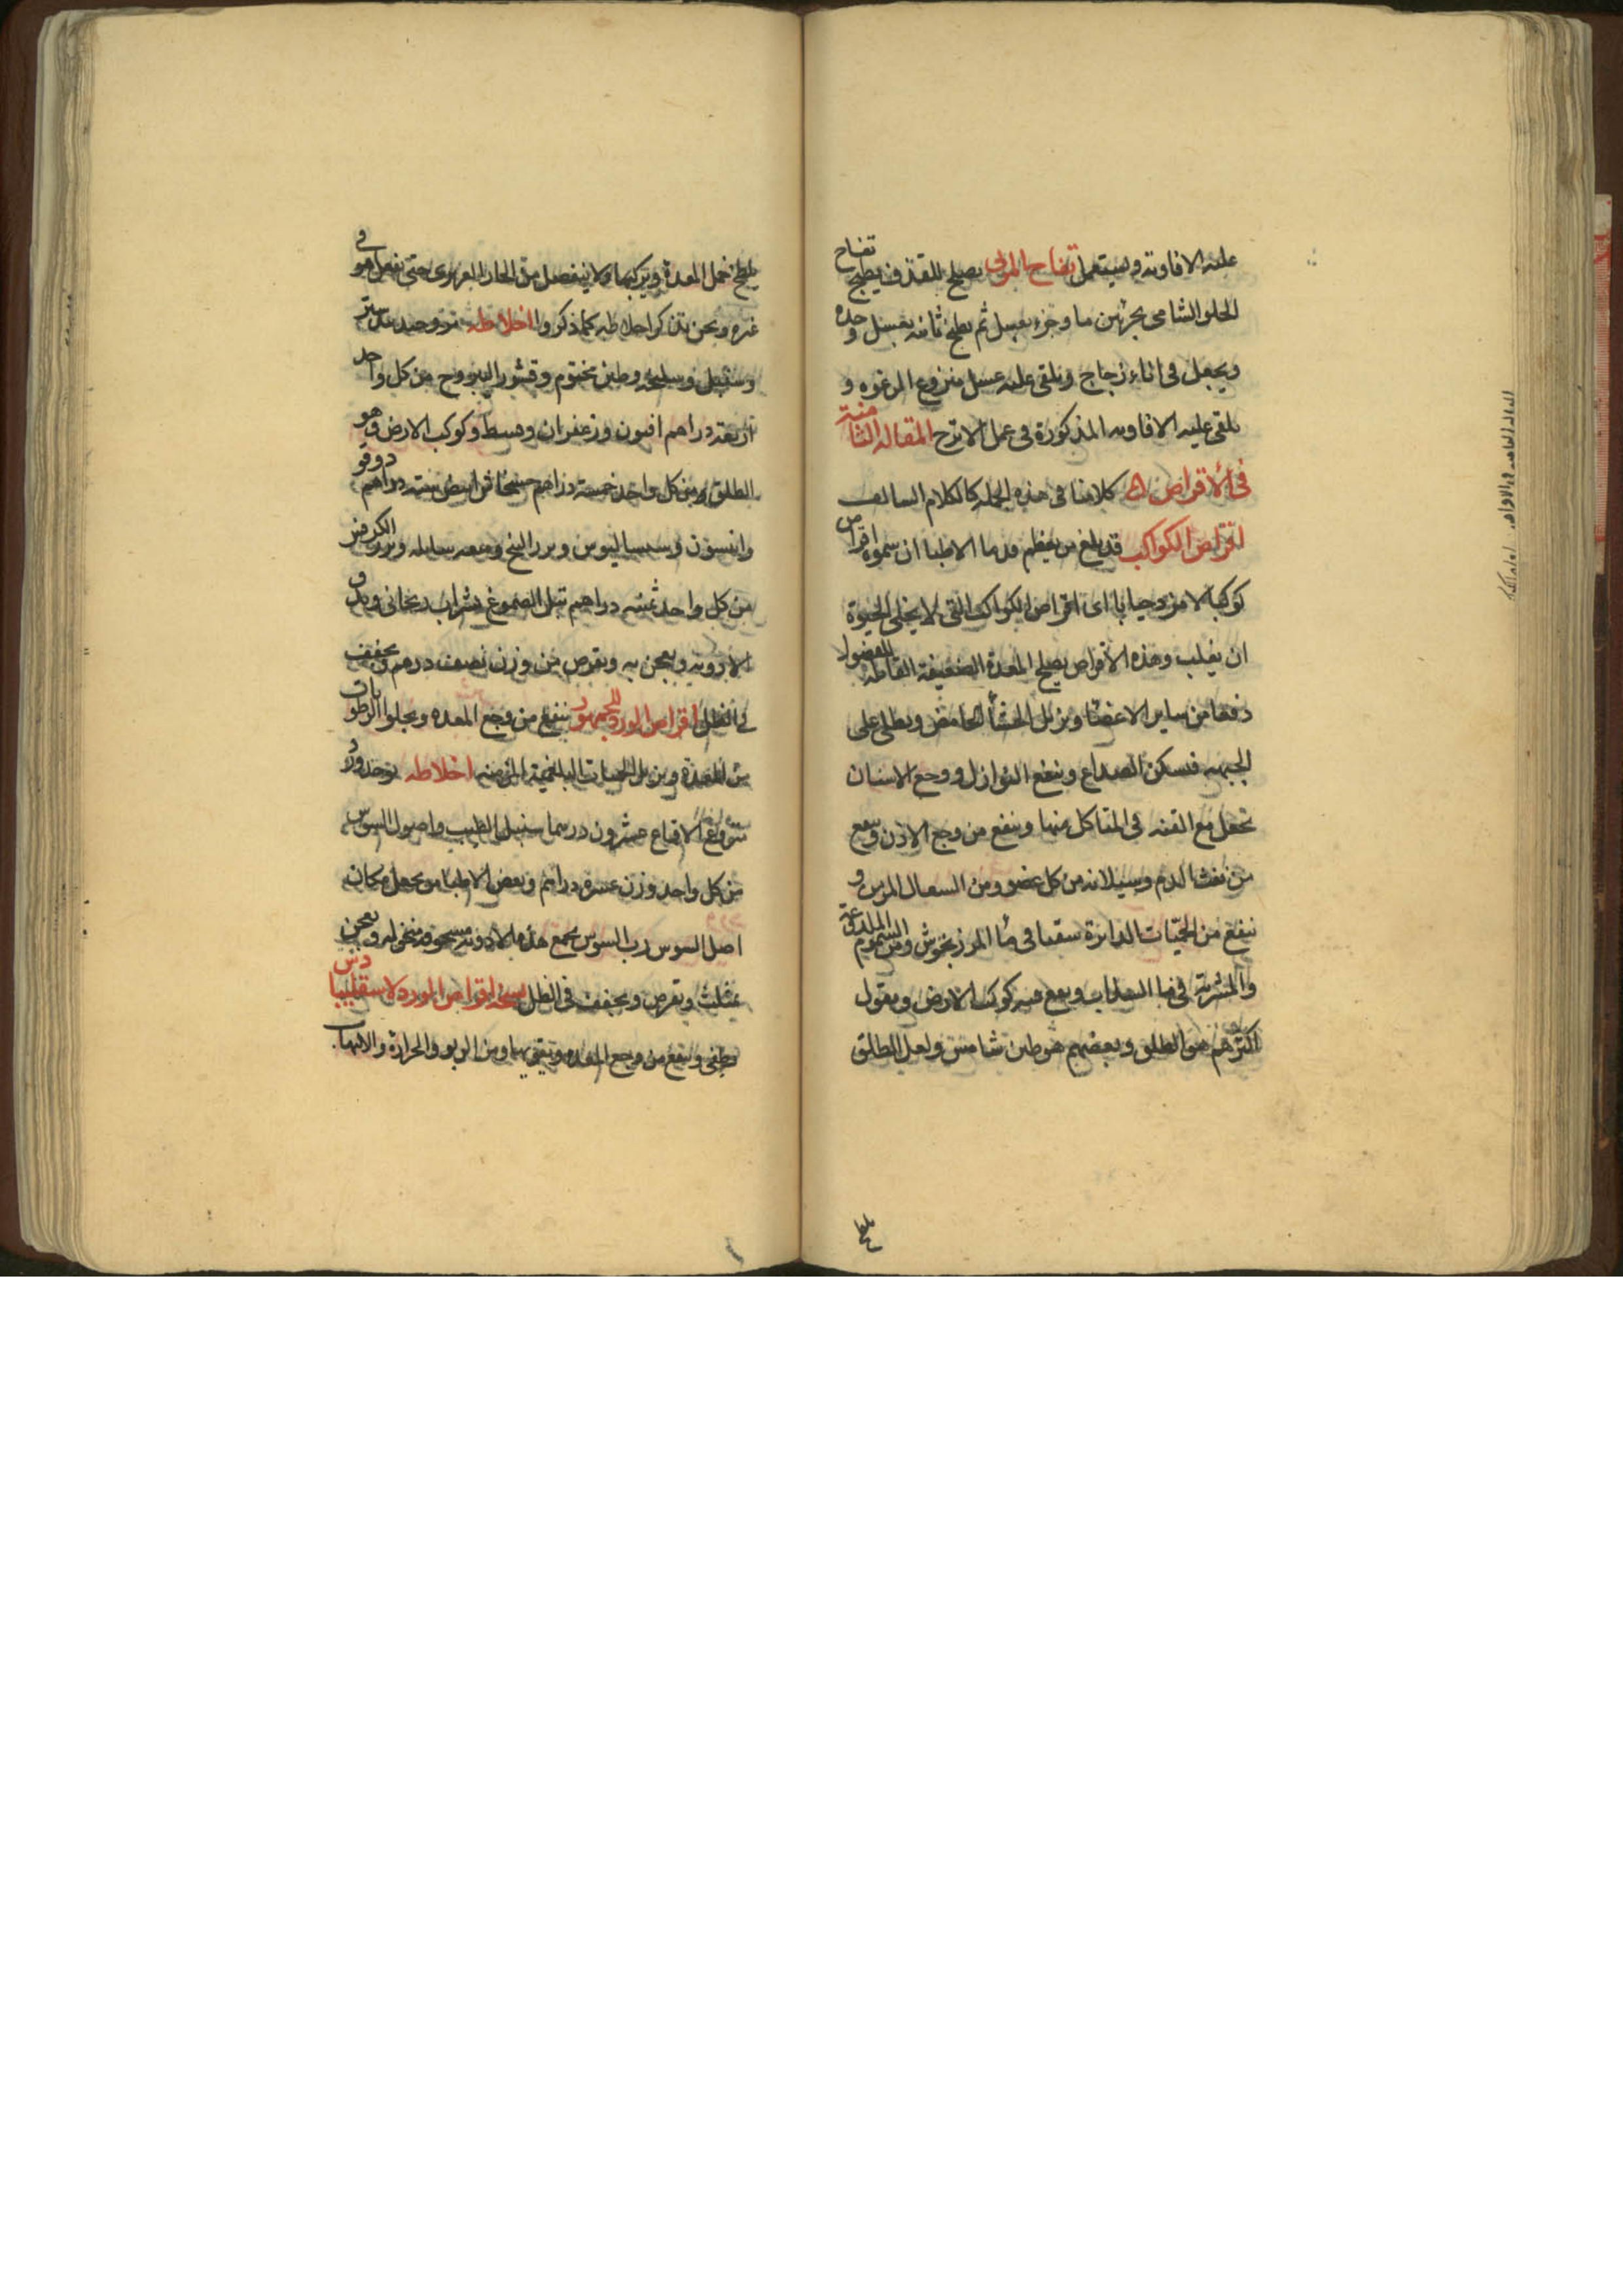 عليه الافاويه ويستعمل تفاح المربى يصلح للقذف يطبخ تفاح
الحلو الشامى بجزئين ما وجزء بعسل ثم يطبخ ثانيه بعسل وحده
ويجعل فى اناء زجاج ويلقى عليه عسل منزوع الرغوه و
يلقى عليه الافاويه المذكورة فى عمل الاترج المقاله الثامنة
فى الأقراص كلامنا فى هذه الجمله كالكلام السالف
اقراص الكواكب قد بلغ من تعظيم قدما الاطبا ان سموه اقراص
كوكبا اى اقراص الكواكب التى لا الحيوة
ان يغلب وهذه الاقراص يصلح المعدة الضعيفة القابلة للفضول
دفعا من ساير الاعضا ويزيل الجشأ الحامض ويطلى على
الجبهه فيسكن الصداع وينفع النوازل ووجع الاسنان
تجعل مع القنه فى المتاكل منها وينفع من وجع الاذن وينفع
من نفث الدم وسيلانه من كل عضو ومن السعال المزمن و
ينفع من الحميات الدايرة سقيا فى ماء المرزنجوش ومن السموم الملدغة
والمشربة فى ماء السذاب ويقع فيه كوكب الارض ويقول
اكثرهم هو الطلق وبعضهم هو طين شامس ولعل الطلق
يلطخ خمل المعدة ويركبها ولا ينفصل من الحار الغريزى حتى يفعل هو فى
غيره ونحن نذكر اخلاطه كما ذكروا اخلاطه مر وجندبيدستر
وسنبل وسليخه وطين مختوم وقشور اليبروح من كل واحد
اربعة دراهم افيون وزعفران وقسط وكوكب الارض وهو
الطلق من كل واحد خمسة دراهم خشخاش ابيض ستة دراهم دوقو
وانيسون وسيساليوس وبزر البنج وميعه سايله وبزر الكرفس
من كل واحد ثمنيه دراهم تبل الصموغ بشراب ريحانى ويدق
الادويه ويعجن به ويقرص من وزن نصف درهم ويجفف
فى الظل اقراص الورد للجمهور ينفع من وجع المعده ويجلوا الرطوبات
من المعدة ويزيل الحميات البلغمية المزمنه اخلاطه يوخذ ورد
منزوع الاقماع عشرون درهما سنبل الطيب واصول السوس
من كل واحد وزن عشره دراهم وبعض الاطبا من يجعل مكان
اصل السوس رب السوس يجمع هذه الادويه مسحوقه منخوله ويعجن
بمثلث ويقرص ويجفف فى الظل نسخه اقراص الورد لاسقليبيادس
يطفى وينفع من وجع المعده وتقويها ومن الربو والحرارة والالتهاب